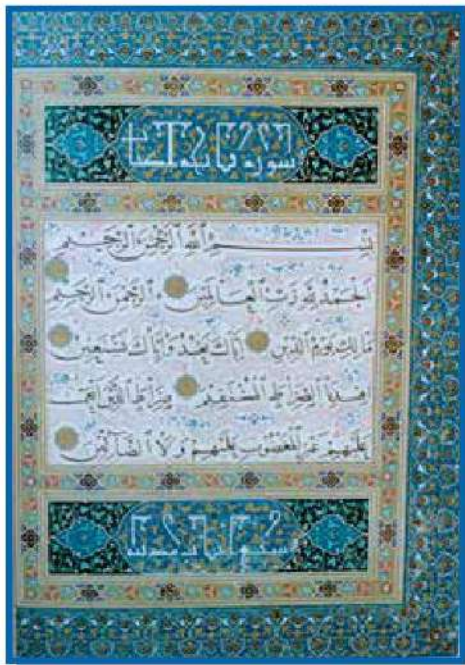 سورة فاتحة الكتاب
بِسْمِ اللَّهِ الرَّحْمَنِ الرَّحِيمِ
الْحَمْدُ لِلَّهِ رَبِّ الْعَالَمِينَ الرَّحْمَنِ الرَّحِيمِ
مَالِكِ يَوْمِ الدِّينِ إِيَّاكَ نَعْبُدُ وَإِيَّاكَ نَسْتَعِينُ
اهْدِنَا الصِّرَاطَ الْمُسْتَقِيمَ صِرَاطَ الَّذِينَ أَنْعَمْتَ
عَلَيْهِمْ غَيْرِ الْمَغْضُوبِ عَلَيْهِمْ وَلَا الضَّالِّينَ